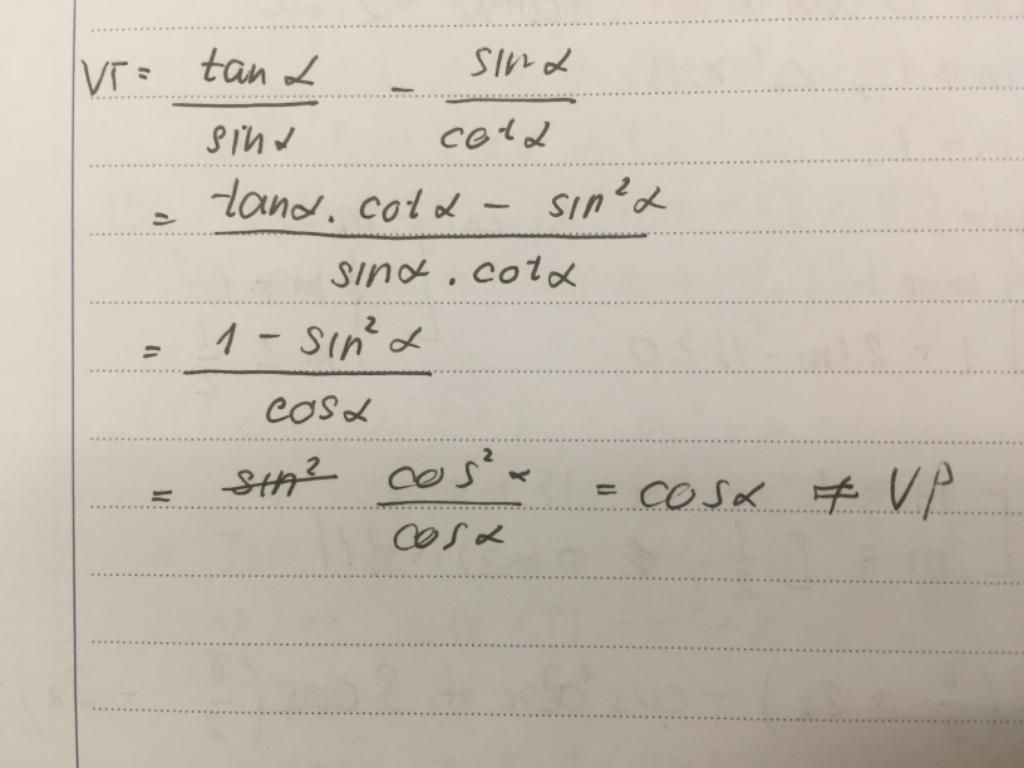 VT = tan α / sin α - sin α / cot α
= tan α . cot α - sin² α / sin α . cot α
= 1 - sin² α / cos α
= sin² cos² α / cos α = cos α ≠ VP